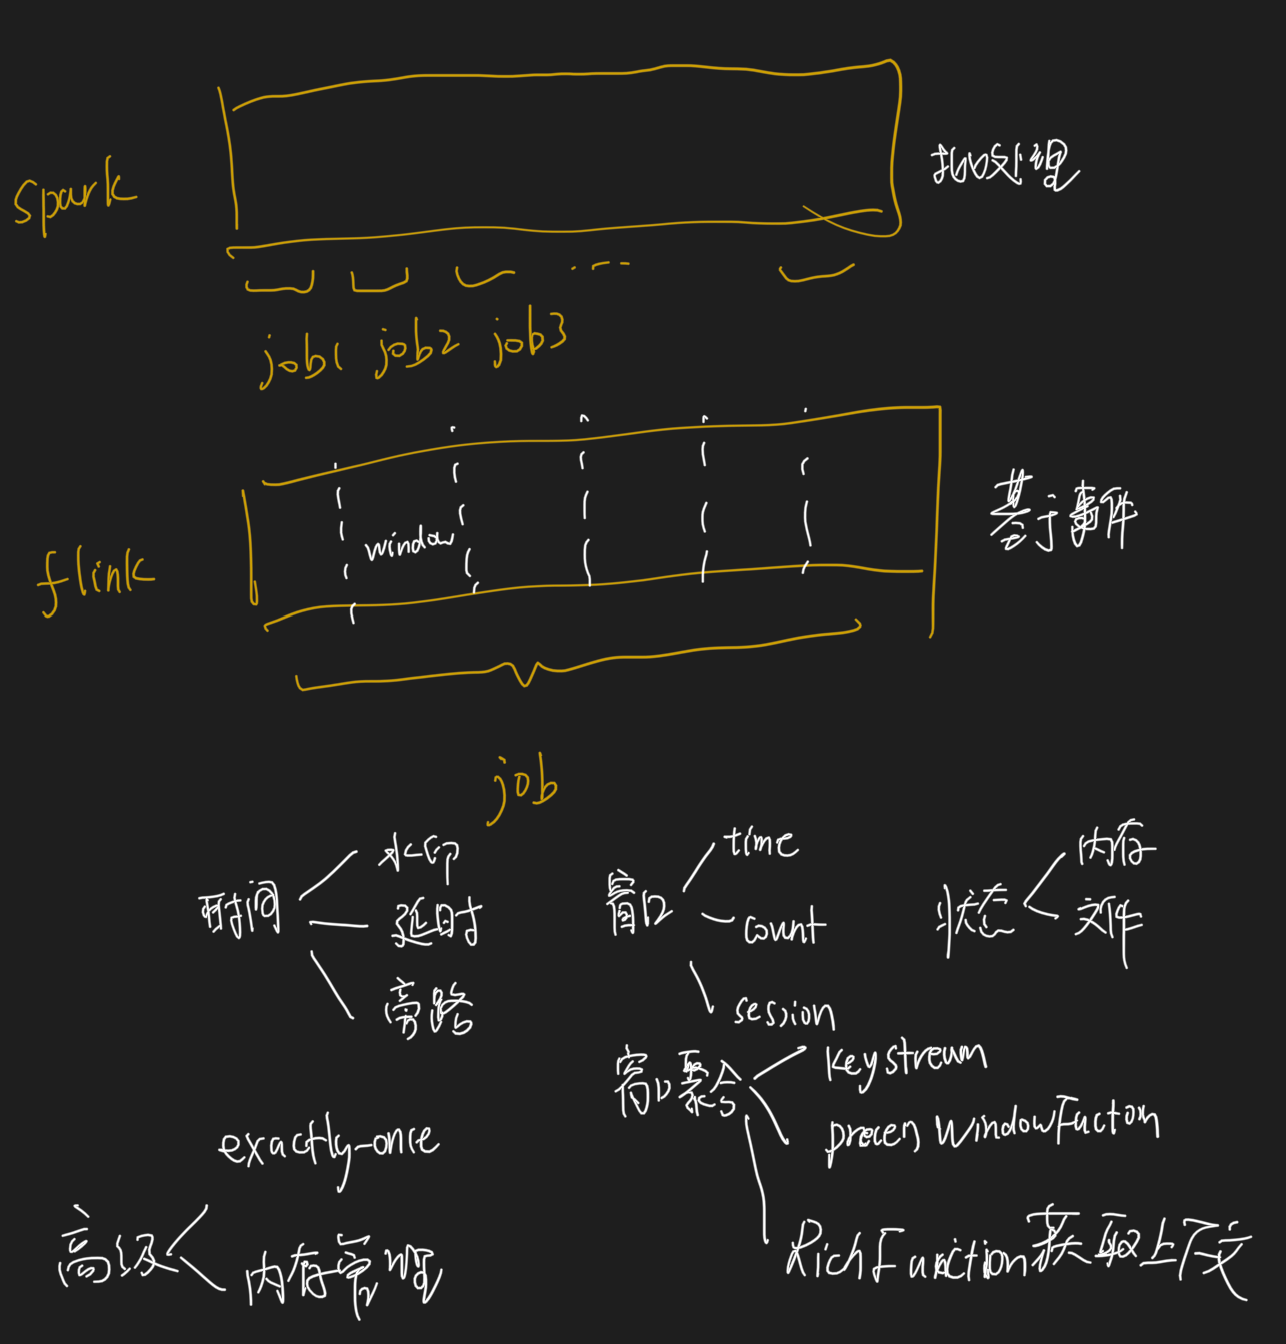 spark
批处理
job1 job2 job3
window
flink
基于事件
job
时间
水印
延时
旁路
窗口
time
count
session
状态
内存
文件
窗口聚合
keystream
process WindowFaction
RichFunction获取上下文
高级
exactly-once
内存管理